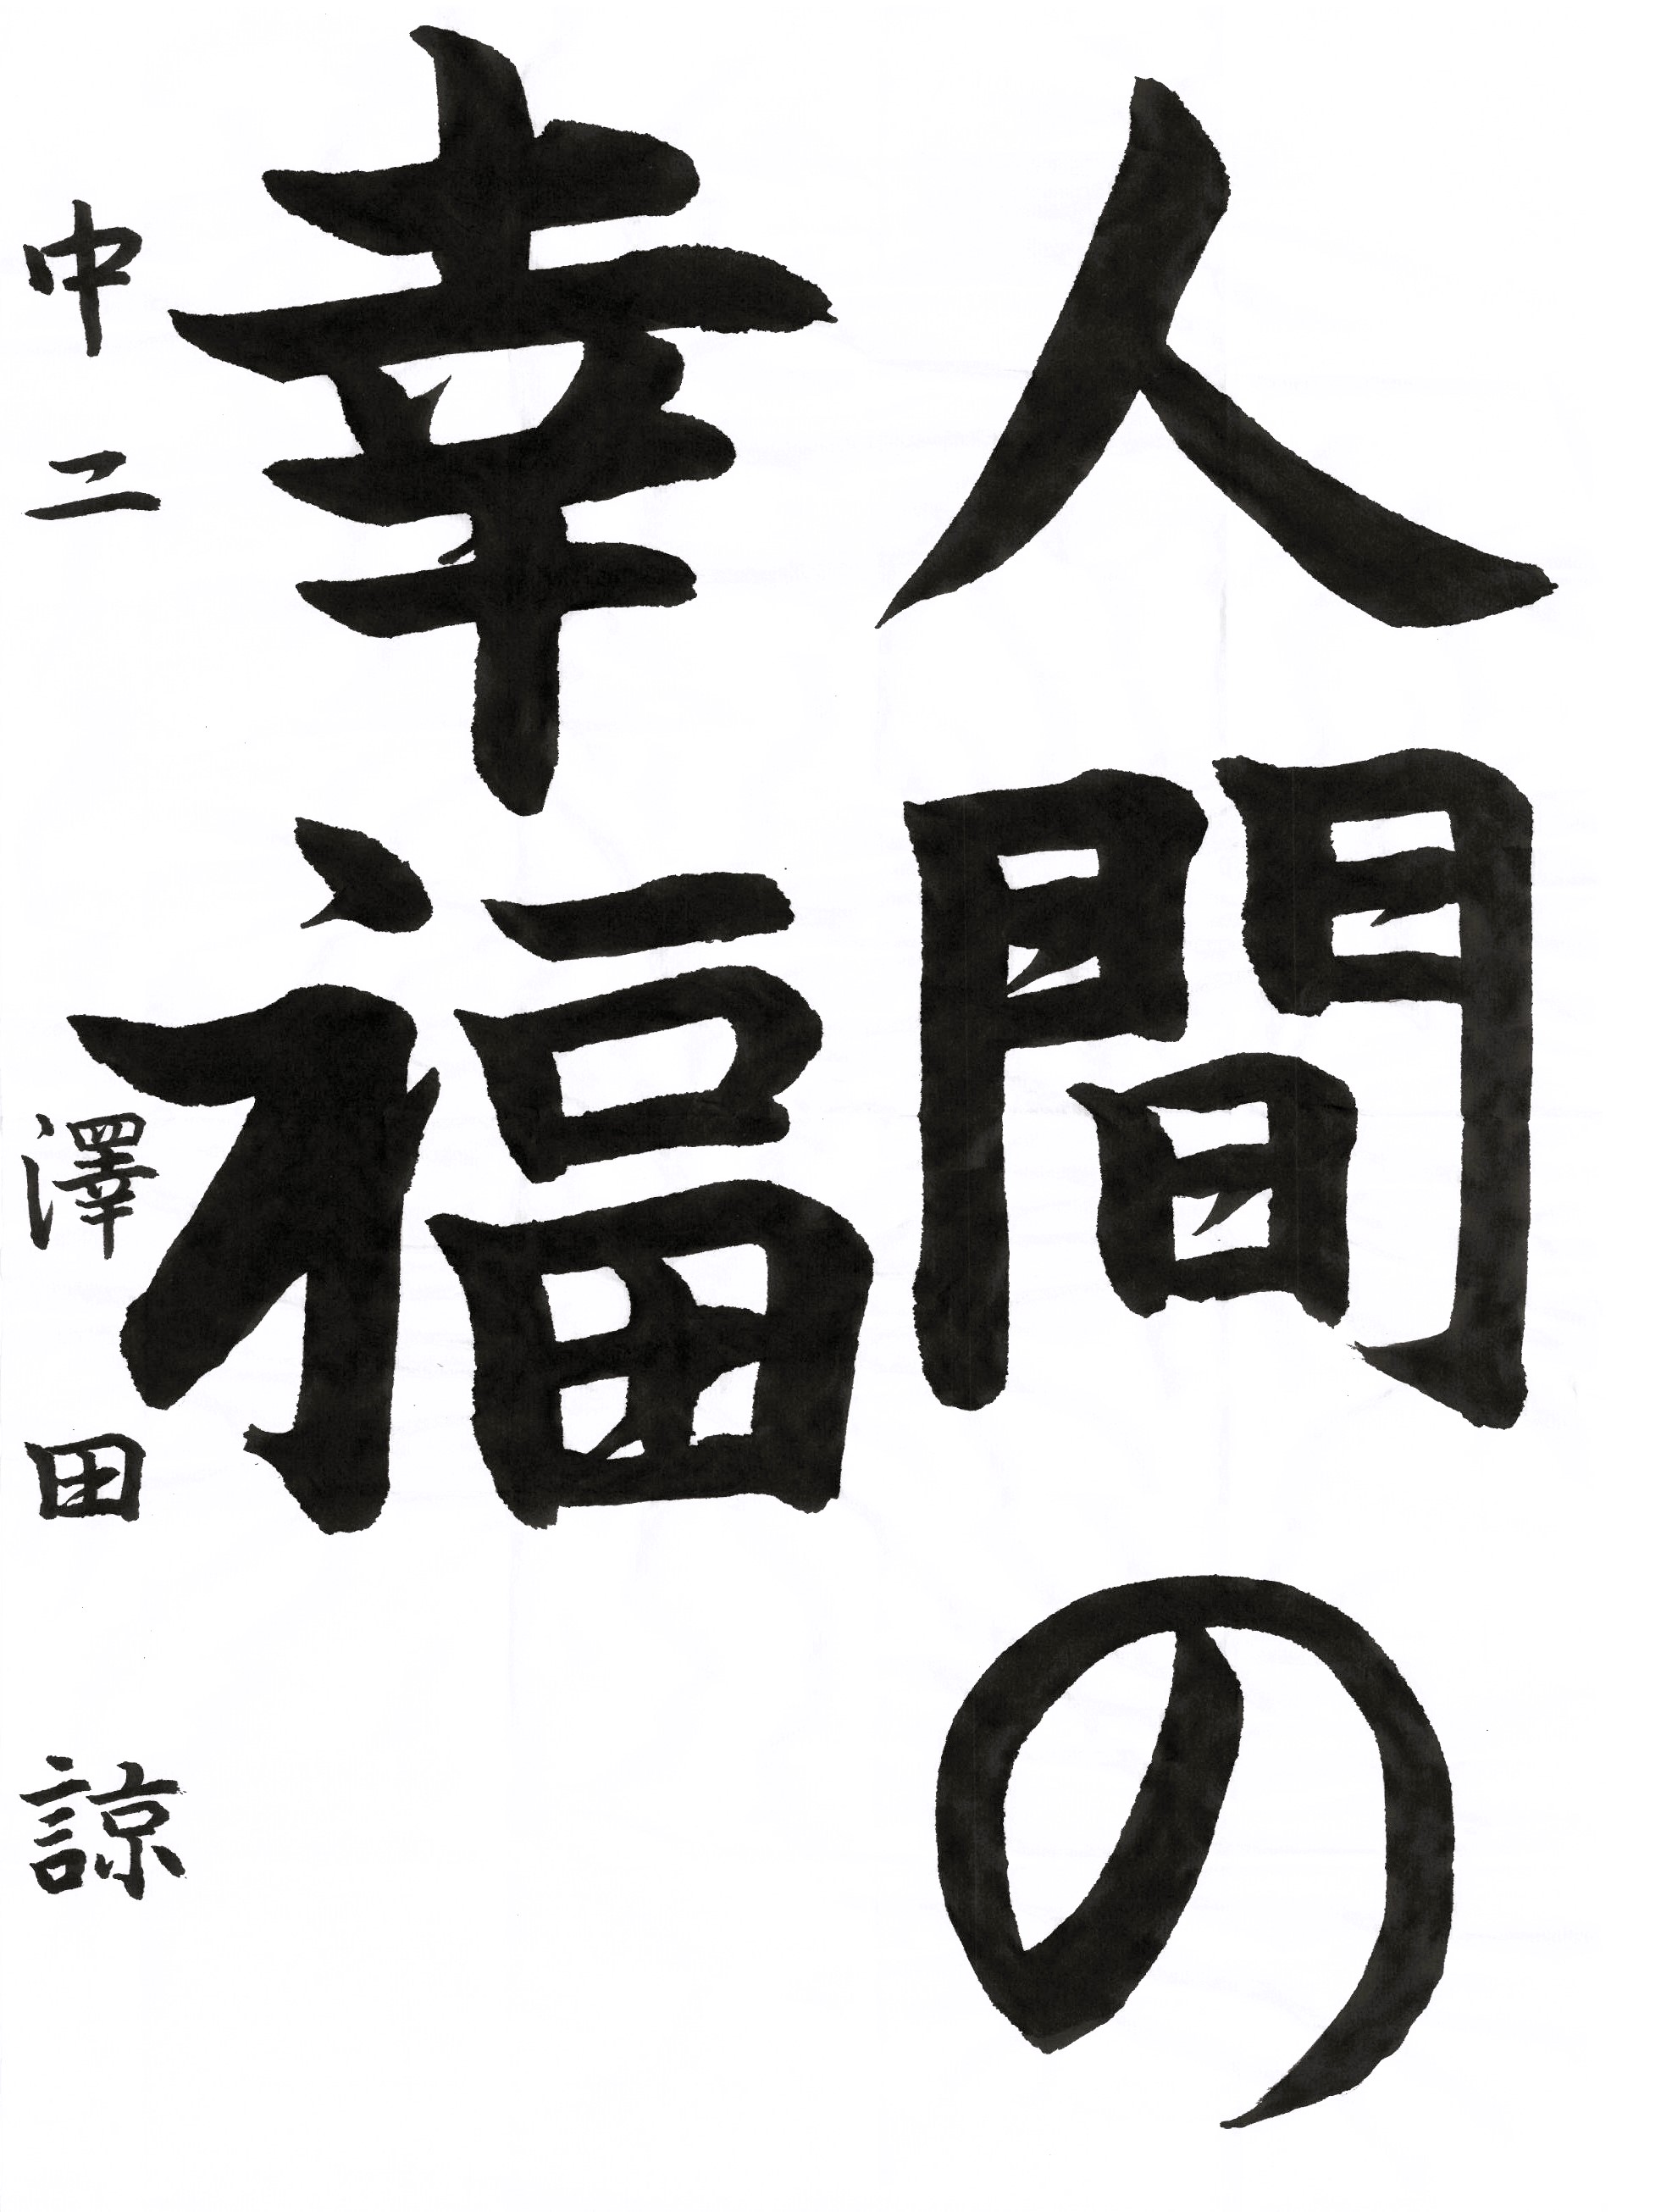 人間の
幸福
中二 澤田 諒